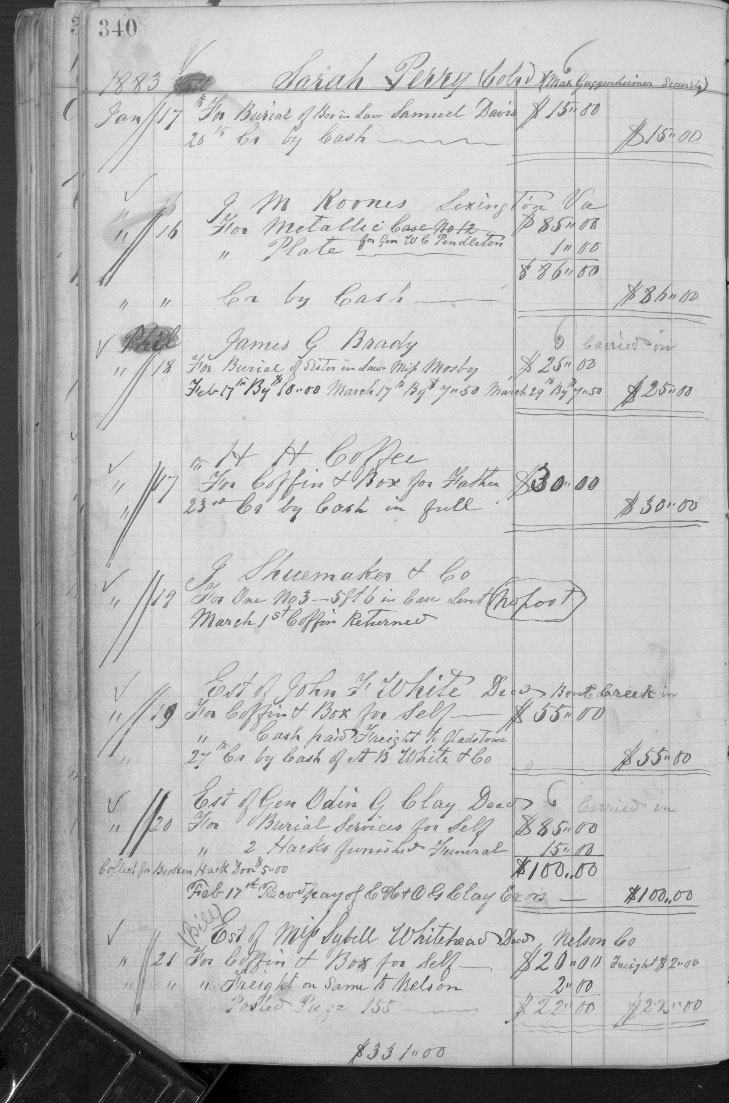 340
1883 Sarah Perry Cold (Max Guggenheimer Security)
Jan 17 th For Burial of Bro in Law Samuel Davis $15"00
20th Cr by Cash $15"00
J M Koones Lexington Va
" 16 For Metallic Case No 12 $85"00
" Plate for Gen W C Pendleton 1"00
$86"00
" " Cr by Cash $86"00
James G Brady Carried in
" 18 For Burial of Sister in Law Miss Mosby $25"00
Feb 17th By $10"00 March 17th By $7"50 March 29th By 7"50 $25"00
H H Coffee
" 17 th For Coffin & Box for Father $30"00
" 23rd Cr by Cash in full $30"00
J Shuemaker & Co
" 19 For One No 3 — 5 ft 6 in Case Lent No post
March 1st Coffin Returned
Est of John F White Decd Bent Creek
" 19 For Coffin & Box for Self $55"00
" Cash paid Freight to Gladstone
" 27th Cr by Cash of A B White & Co $55"00
Est of Gen Odin G Clay Decd Carried in
" 20 For Burial Services for Self $85"00
" 2 Hacks furnished Funeral 15"00
Collect for Broken Hack Door $5"00 $100"00
Feb 17th Recd pay of C C & O G Clay Exors $100"00
Bill Est of Miss Sybell Whitehead Decd Nelson Co
" 21 For Coffin & Box for Self $20"00 Freight $2"00
" " " Freight on Same to Nelson 2"00
Posted Page 155 $22"00 $22"00
$331"00